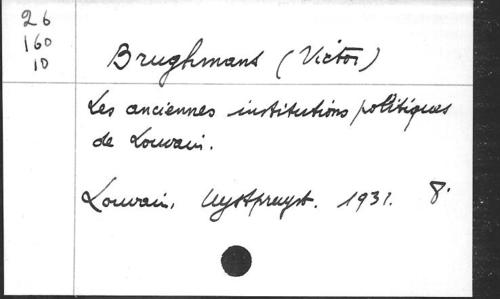 26
160
10
Brughmans (Victor)
Les anciennes institutions politiques
de Louvain.
Louvain, Uystpruyst. 1931. 8°.